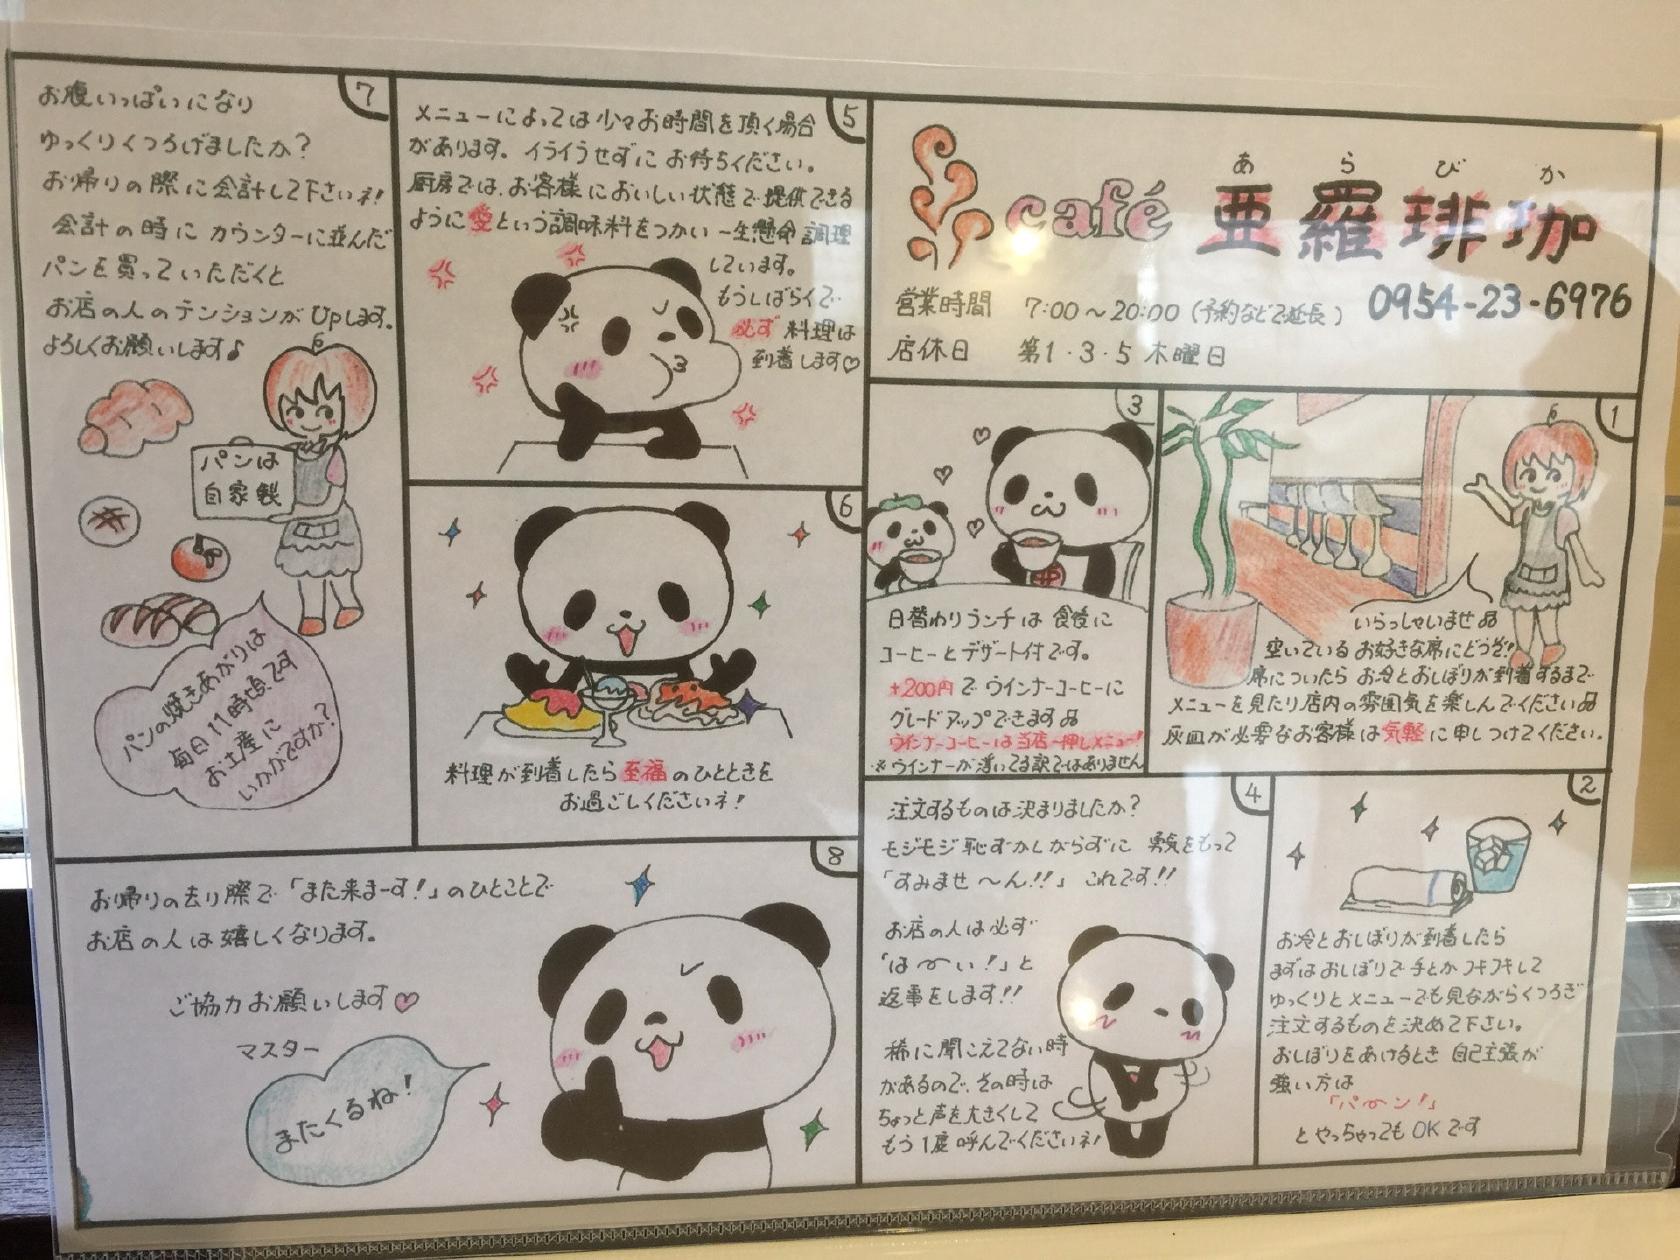 café 亜羅琲珈
あ ら び か
0954-23-6976
営業時間 7:00〜20:00 (予約などで延長)
店休日 第1・3・5 木曜日
1
いらっしゃいませ
空いている お好きな席にどうぞ!
席についたら お冷とおしぼりが到着するまで
メニューを見たり店内の雰囲気を楽しんでください
灰皿が必要なお客様は気軽に申しつけてください。
2
お冷とおしぼりが到着したら
まずはおしぼりで手とか フキフキして
ゆっくりとメニューでも見ながらくつろぎ
注文するものを決めて下さい。
おしぼりをあけるとき 自己主張が
強い方は
「パ〜ン!」
とやっちゃってもOKです
3
日替わりランチは 食後に
コーヒーとデザート付です。
+200円で ウインナーコーヒーに
グレードアップできます
ウインナーコーヒーは当店一押しメニュー!
※ウインナーが浮いてる訳ではありません
4
注文するものは決まりましたか?
モジモジ恥ずかしがらずに 勇気をもって
「すみませ〜ん!!」 これです!!
お店の人は必ず
「は〜い!」と
返事をします!!
稀に聞こえてない時
があるので、その時は
ちょっと声を大きくして
もう1度呼んでくださいネ!
5
メニューによっては少々お時間を頂く場合
があります。イライラせずに お待ちください。
厨房では、お客様においしい状態で提供できる
ように愛という調味料をつかい 一生懸命 調理
しています。
もうしばらくで
必ず 料理は
到着します♡
6
料理が到着したら至福のひとときを
お過ごしくださいネ!
7
お腹いっぱいになり
ゆっくりくつろげましたか?
お帰りの際に会計して下さいネ!
会計の時に カウンターに並んだ
パンを買っていただくと
お店の人のテンションがUpします。
よろしくお願いします♪
パンは
自家製
パンの焼きあがりは
毎日11時頃です
お土産に
いかがですか?
8
お帰りの去り際で「また来まーす!」のひとことで
お店の人は嬉しくなります。
ご協力お願いします♡
マスター
またくるね!